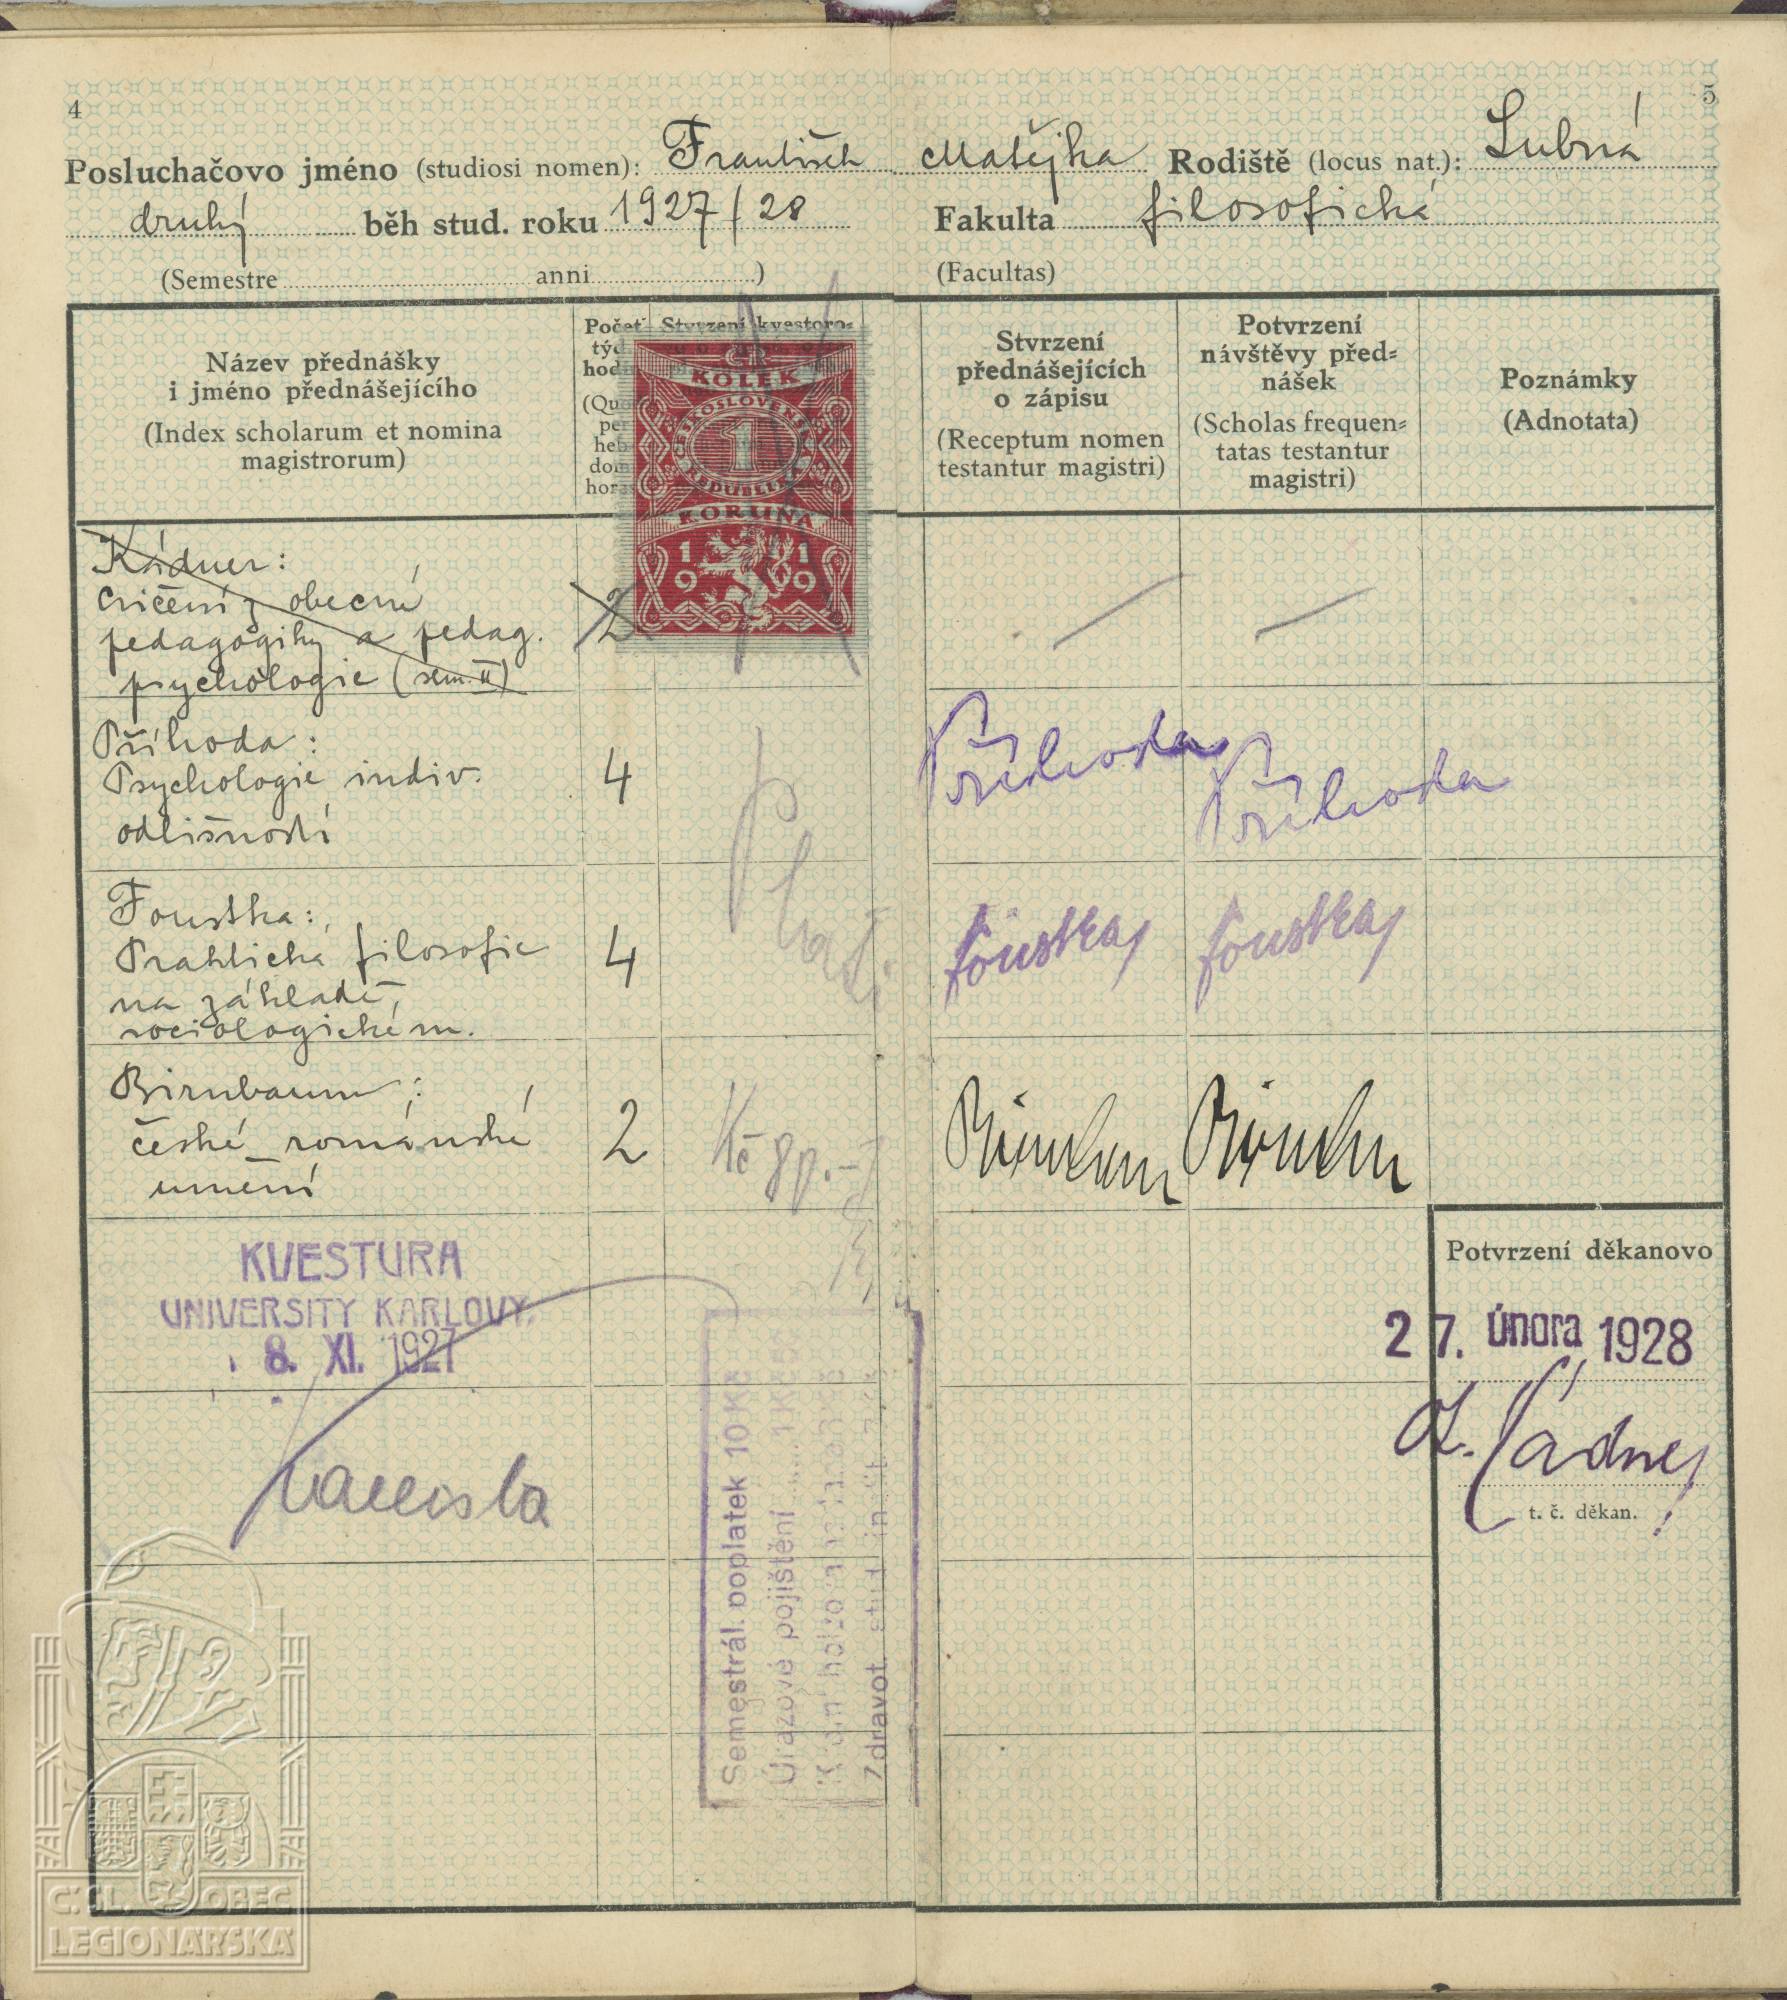 4
5
Posluchačovo jméno (studiosi nomen): František Matějka Rodiště (locus nat.): Lubná
druhý běh stud. roku 1927/28 Fakulta filosofická
(Semestre anni ) (Facultas)
Název přednášky
i jméno přednášejícího
(Index scholarum et nomina
magistrorum)
Počet
týd
hod
(Qu
per
heb
dom
hora
Stvrzení kvestoro-
KOLEK
ČESKOSLOVENSKÁ
1
REPUBLIKA
KORUNA
19 19
Stvrzení
přednášejících
o zápisu
(Receptum nomen
testantur magistri)
Potvrzení
návštěvy před-
nášek
(Scholas frequen-
tatas testantur
magistri)
Poznámky
(Adnotata)
Kádner:
Cvičení z obecné
pedagogiky a pedag. 2
psychologie (sem. II)
Příhoda:
Psychologie indiv. 4 Příhoda Příhoda
odlišností
Foustka:
Praktická filosofie 4 Foustka Foustka
na základě
sociologickém.
Birnbaum:
české románské 2 Kč 90.- Birnbaum Birnbaum
umění
KVESTURA
UNIVERSITY KARLOVY.
8. XI. 1927
Semestrál. poplatek 10 Kč
Úrazové pojištění ..... 1 Kč
Zdravot. stud.
Potvrzení děkanovo
27. února 1928
O. Kádner
t. č. děkan.
Č. SL. OBEC
LEGIONÁŘSKÁ